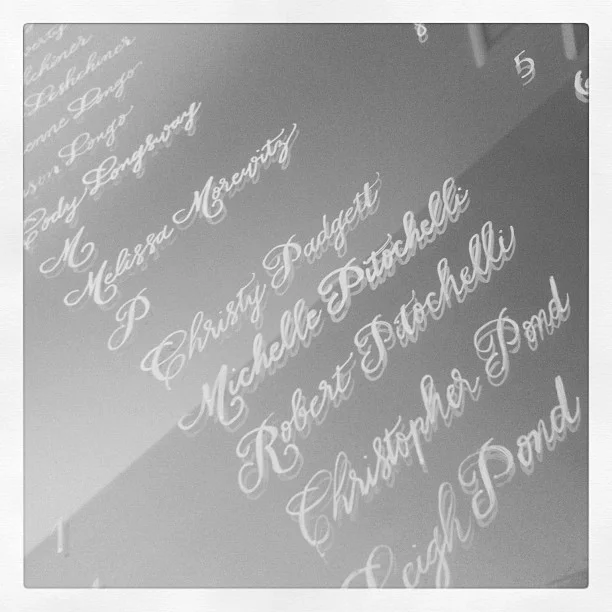 Leshchiner
Longo
Longo
Cody Longsway
M
Melissa Morewitz
P
Christy Padgett
Michelle Pitochelli
Robert Pitochelli
Christopher Pond
Leigh Pond
8
5
6
1